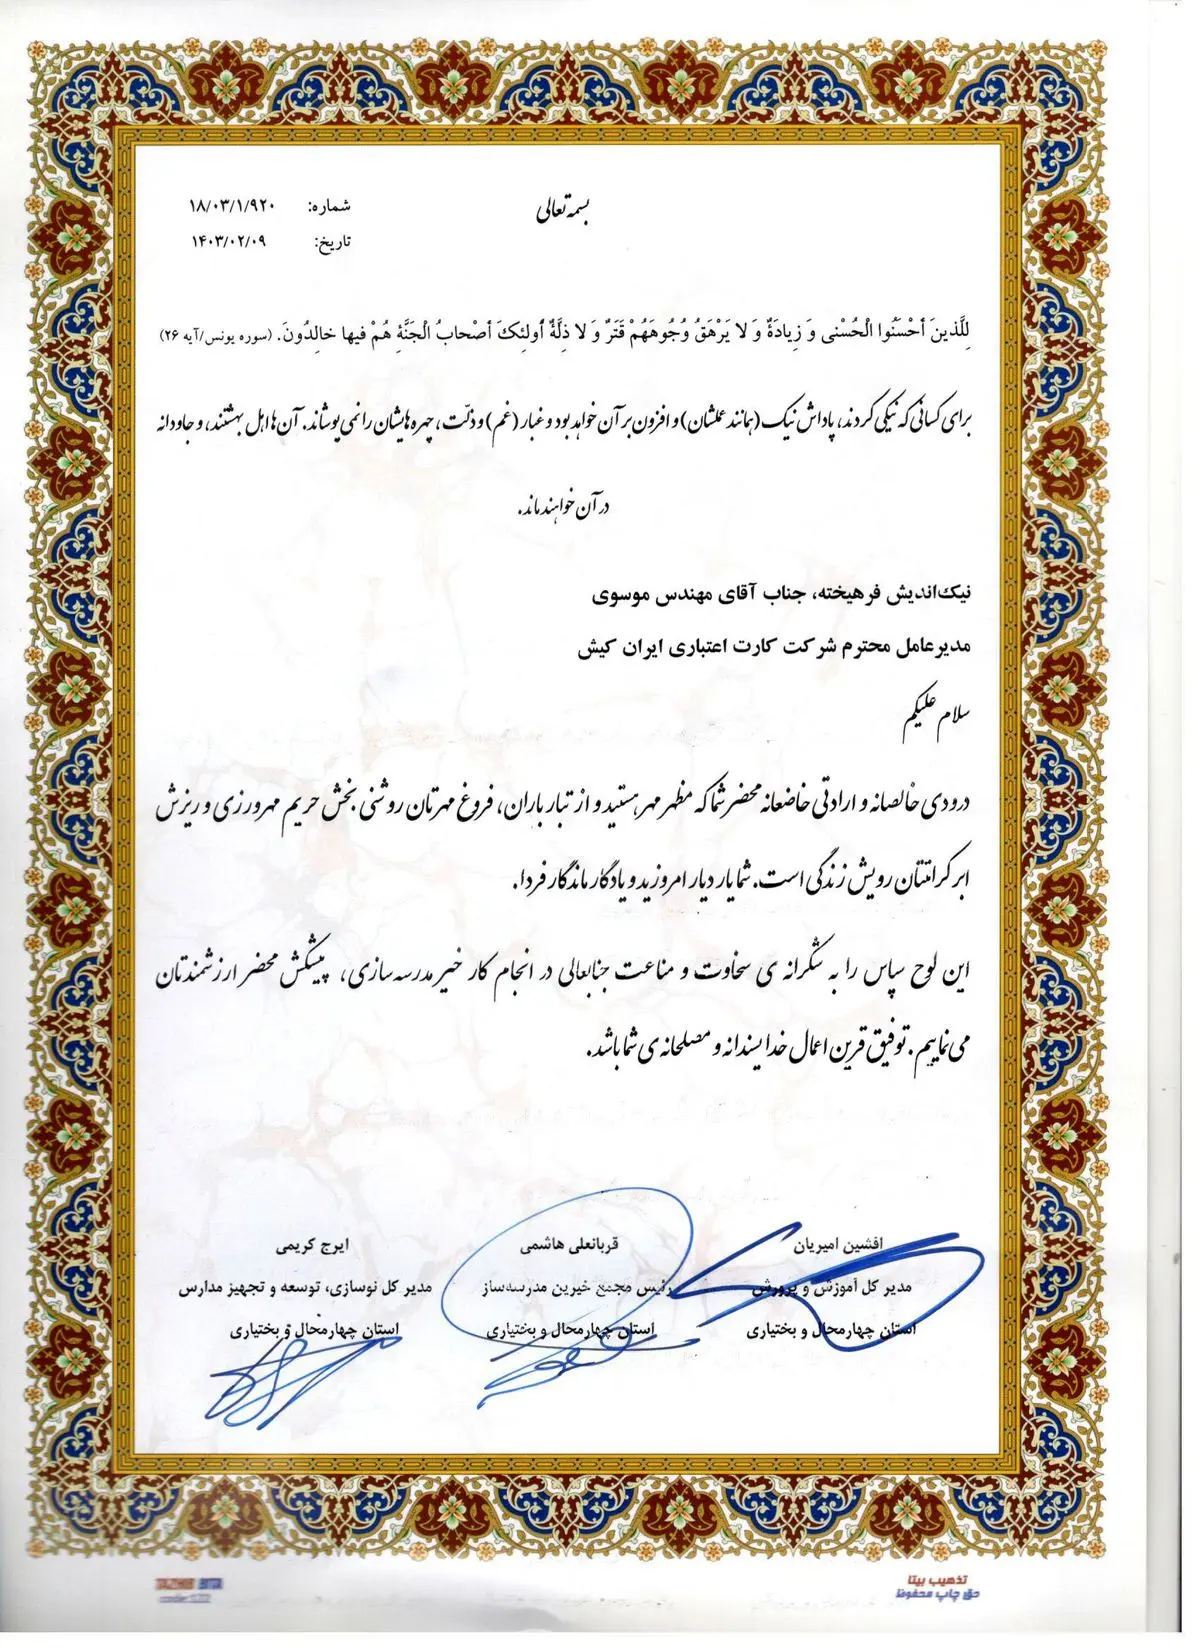 بسمه تعالی
شماره: ۱۸/۰۳/۱/۹۲۰
تاریخ: ۱۴۰۳/۰۲/۰۹
لِلَّذینَ أحْسَنُوا الْحُسْنی وَ زِیادَةٌ وَ لا یَرْهَقُ وُجُوهَهُمْ قَتَرٌ وَ لا ذِلَّةٌ أُولئِكَ أصْحابُ الْجَنَّةِ هُمْ فیها خالِدُونَ. (سوره یونس/آیه ۲۶)
برای کسانی که نیکی کردند، پاداش نیک (همانند عملشان) و افزون بر آن خواهد بود و غبار (غم) و ذلّت، چهره هایشان را نمی پوشاند. آن ها اهل بهشتند، و جاودانه
در آن خواهند ماند.
نیک‌اندیش فرهیخته، جناب آقای مهندس موسوی
مدیرعامل محترم شرکت کارت اعتباری ایران کیش
سلام علیکم
درودی خالصانه و ارادتی خاضعانه محضر شما که مظهر مهر هستید و از تبار باران، فروغ مهرتان روشنی بخش حریم مهرورزی و ریزش
ابر کرامتتان رویش زندگی است. شما یار دیار امروزید و یادگار ماندگار فردا.
این لوح سپاس را به شکرانه ی سخاوت و مناعت جنابعالی در انجام کار خیر مدرسه سازی، پیشکش محضر ارزشمندتان
می نماییم. توفیق قرین اعمال خدا پسندانه و مصلحانه ی شما باشد.
افشین امیریان
مدیر کل آموزش و پرورش
استان چهارمحال و بختیاری
قربانعلی هاشمی
رئیس مجمع خیرین مدرسه‌ساز
استان چهارمحال و بختیاری
ایرج کریمی
مدیر کل نوسازی، توسعه و تجهیز مدارس
استان چهارمحال و بختیاری
تذهیب بیتا
حق چاپ محفوظ
TAZHIB BITA